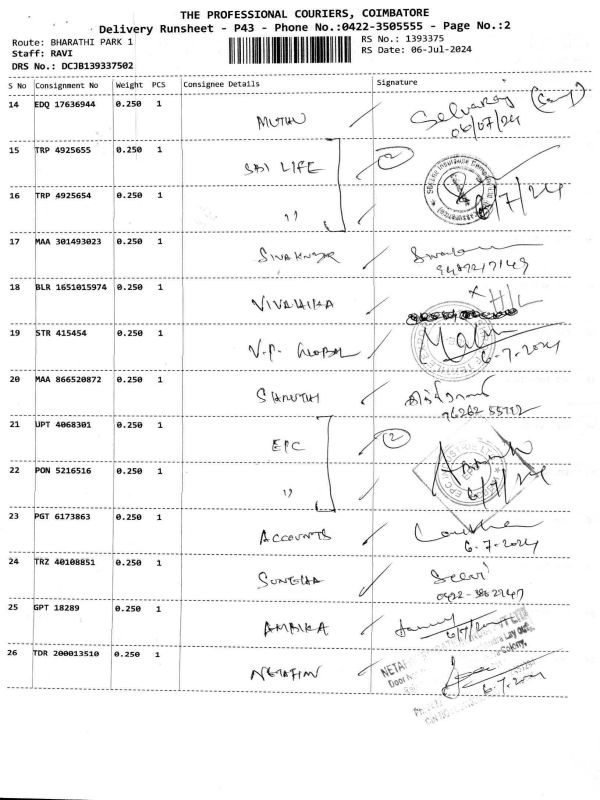 THE PROFESSIONAL COURIERS, COIMBATORE
Delivery Runsheet - P43 - Phone No.:0422-3505555 - Page No.:2
Route: BHARATHI PARK 1
RS No.: 1393375
Staff: RAVI
RS Date: 06-Jul-2024
DRS No.: DCJB139337502
S No Consignment No Weight PCS Consignee Details Signature
14 EDQ 17636944 0.250 1 MUTHU Selvaraj
06/07/24
15 TRP 4925655 0.250 1 SBI LIFE 2
16 TRP 4925654 0.250 1 " 6/7/24
17 MAA 301493023 0.250 1 SIVAKUMAR
18 BLR 1651015974 0.250 1 VIVAHIKA
19 STR 415454 0.250 1 V.P. GLOBAL
6-7-2024
20 MAA 866520872 0.250 1 SHRUTHI
76262 55772
21 UPT 4068301 0.250 1 EPC 2
22 PON 5216516 0.250 1 " 6/7/24
23 PGT 6173863 0.250 1 ACCOUNTS
6-7-2024
24 TRZ 40108851 0.250 1 Selvi
25 GPT 18289 0.250 1 AMBIKA 6/7/2024
26 TDR 200013510 0.250 1 NETAFIM
6.7.2024